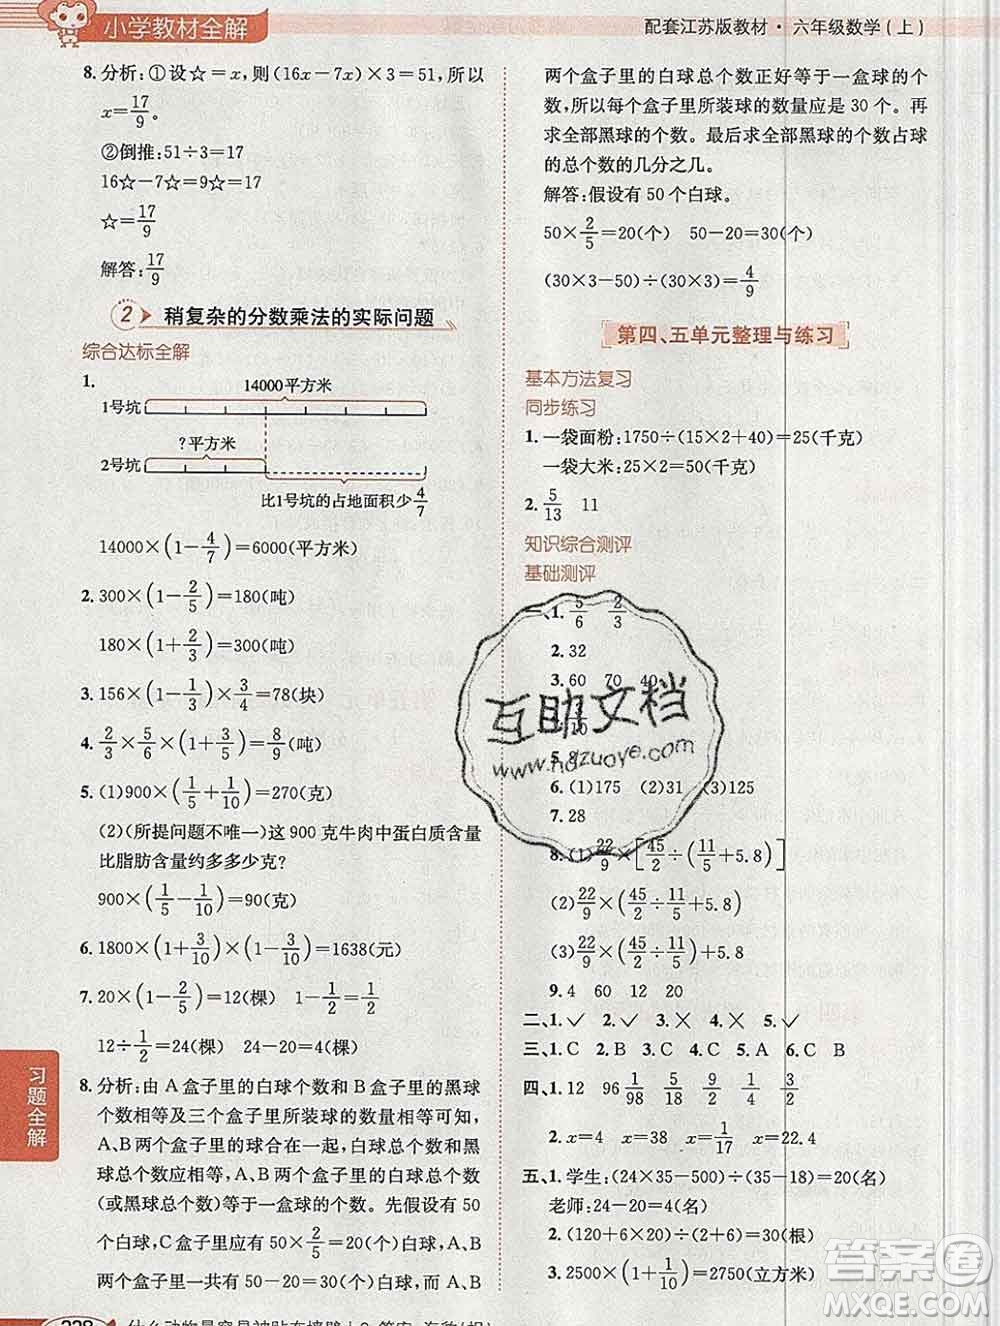 小学教材全解
配套江苏版教材·六年级数学(上)
8. 分析:①设☆=x,则(16x-7x)×3=51,所以
x=17/9。
②倒推:51÷3=17
16☆-7☆=9☆=17
☆=17/9
解答:17/9
2 稍复杂的分数乘法的实际问题
综合达标全解
1.
14000平方米
1号坑
?平方米
2号坑
比1号坑的占地面积少4/7
14000×(1-4/7)=6000(平方米)
2. 300×(1-2/5)=180(吨)
180×(1+2/3)=300(吨)
3. 156×(1-3/4)×3/4... 
4. 2/3×5/6×(1+3/5)=8/9(吨)
5. (1)900×(1/5+1/10)=270(克)
(2)(所提问题不唯一)这900克牛肉中蛋白质含量
比脂肪含量约多多少克?
900×(1/5-1/10)=90(克)
6. 1800×(1+3/10)×(1-3/10)=1638(元)
7. 20×(1-2/5)=12(棵) 1-1/2=1/2
12÷1/2=24(棵) 24-20=4(棵)
8. 分析:由A盒子里的白球个数和B盒子里的黑球
个数相等及三个盒子里所装球的数量相等可知,
A、B两个盒子里的球合在一起,白球总个数和黑
球总个数应相等,A、B两个盒子里的白球总个数
(或黑球总个数)等于一盒球的个数。先假设有50
个白球,A盒子里应有50×2/5=20(个)白球,A、B
两个盒子里共有50-20=30(个)白球,而A、B
两个盒子里的白球总个数正好等于一盒球的个
数,所以每个盒子里所装球的数量应是30个。再
求全部黑球的个数。最后求全部黑球的个数占球
的总个数的几分之几。
解答:假设有50个白球。
50×2/5=20(个) 50-20=30(个)
(30×3-50)÷(30×3)=4/9
第四、五单元整理与练习
基本方法复习
同步练习
1. 一袋面粉:1750÷(15×2+40)=25(千克)
一袋大米:25×2=50(千克)
2. 5/13 11
知识综合测评
基础测评
一、1. 5/6 2/3
2. 32
3. 60 70 40
5. 8
6. (1)175 (2)31 (3)125
7. 28
8. (1)22/9×[45/2÷(11/5+5.8)]
(2)22/9×(45/2÷11/5+5.8)
(3)22/9×(45/2÷11/5)+5.8
9. 4 60 12 20
二、1.✓ 2.✓ 3.✕ 4.✕ 5.✓
三、1. C 2. B 3. C 4. B 5. A 6. C B
四、1. 12 96 1/98 1 9/25 1
2. x=4 x=38 x=1/17 x=22.4
五、1. 学生:(24×35-500)÷(35-18)=20(名)
老师:24-20=4(名)
2. (120+6×20)÷(2+6)=30(根)
3. 2500×(1+1/10)=2750(立方米)
习题全解
互助文档
www.hdzuoye.com
答案圈
MXQE.COM